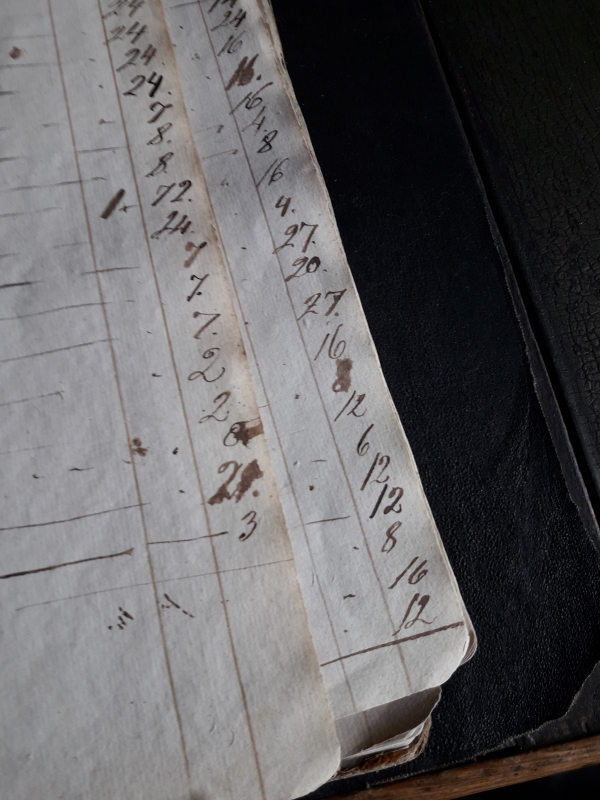 24
24
24
24.
7
8.
8.
1. 72.
24.
7
7.
7.
2
2
8
21.
3
24
16
16.
16
4.
8
16
4.
27.
20.
27.
16
8
12
6
12
12
8
16
12